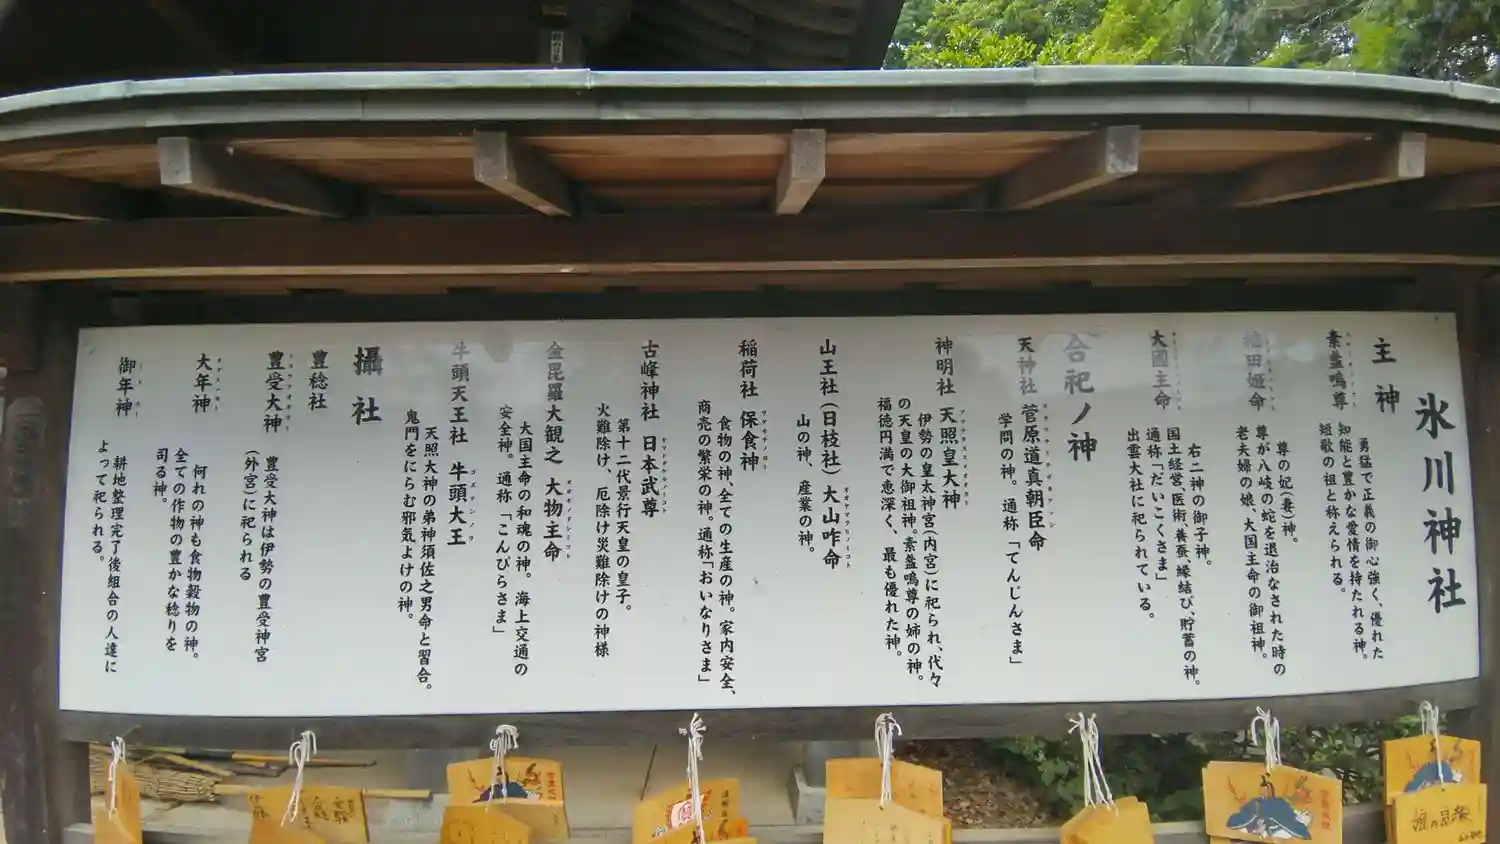 氷川神社
主神
素盞嗚尊
勇猛で正義の御心強く、優れた
知能と豊かな愛情を持たれる神。
短歌の祖と称えられる。
稲田姫命
尊の妃(妻)神。
尊が八岐の蛇を退治なされた時の
老夫婦の娘、大国主命の御祖神。
大國主命
右二神の御子神。
国土経営、医術、養蚕、縁結び、貯蓄の神。
通称「だいこくさま」
出雲大社に祀られている。
合祀ノ神
天神社 菅原道真朝臣命
学問の神。通称「てんじんさま」
神明社 天照皇大神
伊勢の皇太神宮(内宮)に祀られ、代々
の天皇の大御祖神。素盞嗚尊の姉の神。
福徳円満で恵深く、最も優れた神。
山王社(日枝社) 大山咋命
山の神、産業の神。
稲荷社 保食神
食物の神、全ての生産の神。家内安全、
商売の繁栄の神。通称「おいなりさま」
古峰神社 日本武尊
第十二代景行天皇の皇子。
火難除け、厄除け災難除けの神様
金毘羅大観之 大物主命
大国主命の和魂の神。海上交通の
安全神。通称「こんぴらさま」
牛頭天王社 牛頭大王
天照大神の弟神須佐之男命と習合。
鬼門をにらむ邪気よけの神。
攝社
豊稔社
豊受大神
豊受大神は伊勢の豊受神宮
(外宮)に祀られる
大年神
何れの神も食物穀物の神。
全ての作物の豊かな稔りを
司る神。
御年神
耕地整理完了後組合の人達に
よって祀られる。